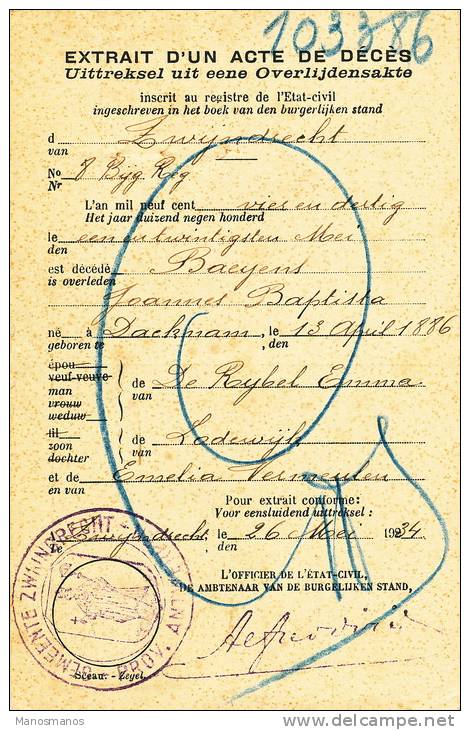 103386
EXTRAIT D'UN ACTE DE DÉCÈS
Uittreksel uit eene Overlijdensakte
inscrit au registre de l'Etat-civil
ingeschreven in het boek van den burgerlijken stand
d Zwijndrecht
van
No 8 Bijg Reg
Nr
L'an mil neuf cent vier en dertig
Het jaar duizend negen honderd
le een en twintigsten Mei
den
est décédé Baeyens
is overleden
Joannes Baptista
né à Dacknam, le 13 April 1886
geboren te , den
épou
veuf-veuve
man de De Rybel Emma
vrouw van
weduw
fil
zoon de Lodewijk
dochter van
et de Emelia Vermeulen
en van
Pour extrait conforme:
Voor eensluidend uittreksel :
Te Zwijndrecht, le 26 Mei 1934.
den
L'OFFICIER DE L'ÉTAT-CIVIL,
DE AMBTENAAR VAN DE BURGELIJKEN STAND,
GEMEENTE ZWIJNDRECHT - PROV. ANT
Sceau. - Zegel.
Manosmanos
www.delcampe.net